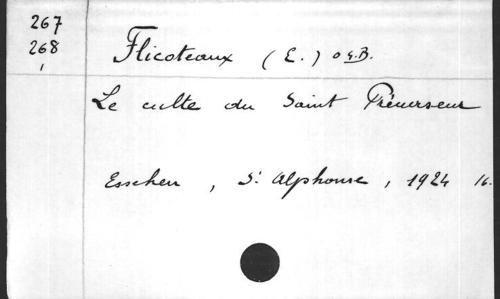 267
268
1
Flicoteaux (E.) O.S.B.
Le culte du Saint Précurseur
Esschen, St Alphonse, 1924 16.